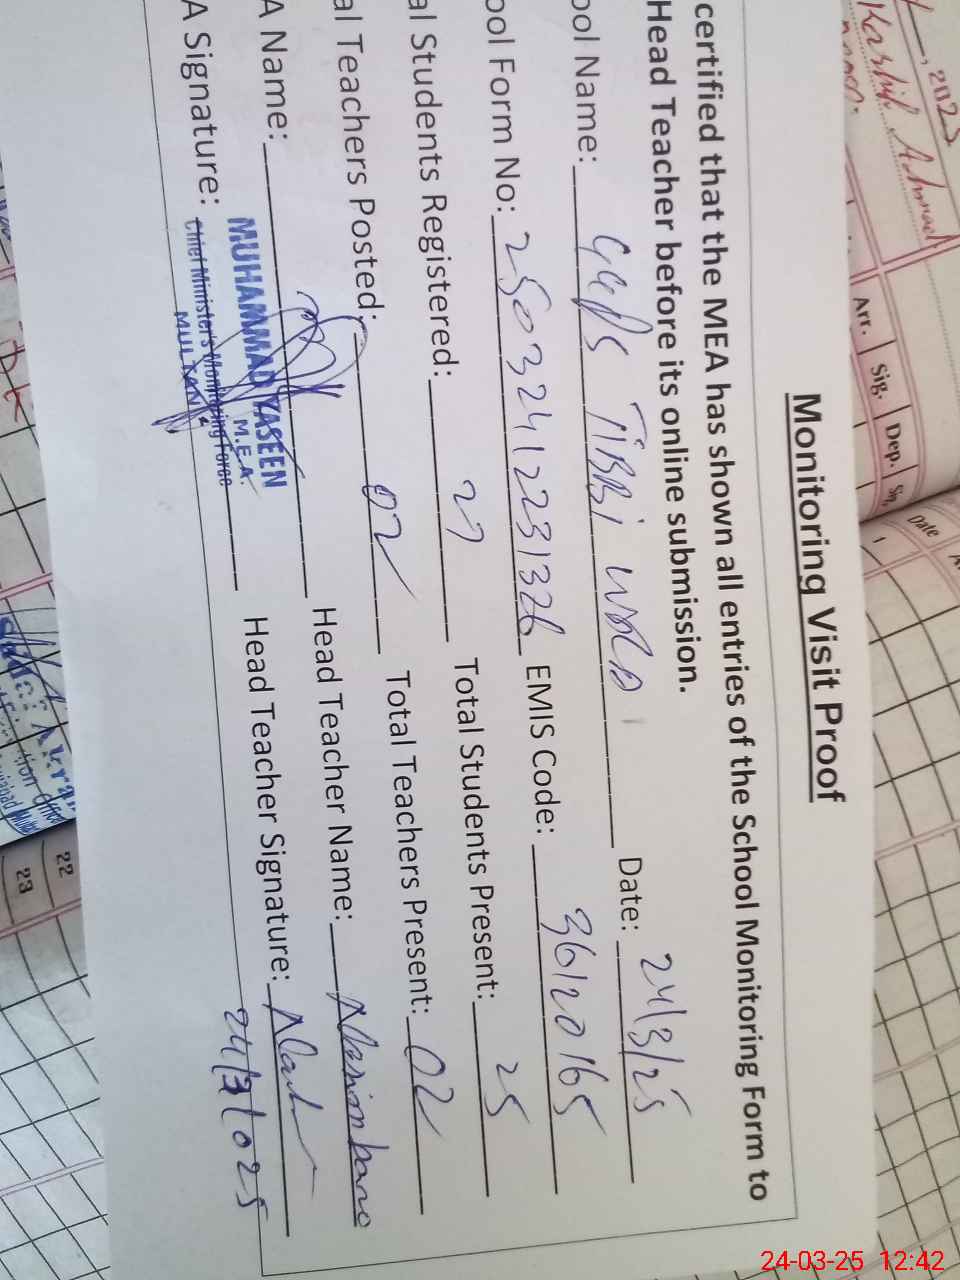 Monitoring Visit Proof
certified that the MEA has shown all entries of the School Monitoring Form to
Head Teacher before its online submission.
ool Name: GGPS TiBBi Date: 24/3/25
ool Form No: 25032412231326 EMIS Code: 36120165
al Students Registered: 27 Total Students Present: 25
al Teachers Posted: 02 Total Teachers Present: 02
A Name: Head Teacher Name:
A Signature: Head Teacher Signature:
MUHAMMAD YASEEN
M.E.A.
Chief Minister's Monitoring Force
MULTAN
24/3/025
, 2025
Kashif Ahmad
Arr. Sig. Dep. Sig.
Date
1
22
23
24-03-25 12:42